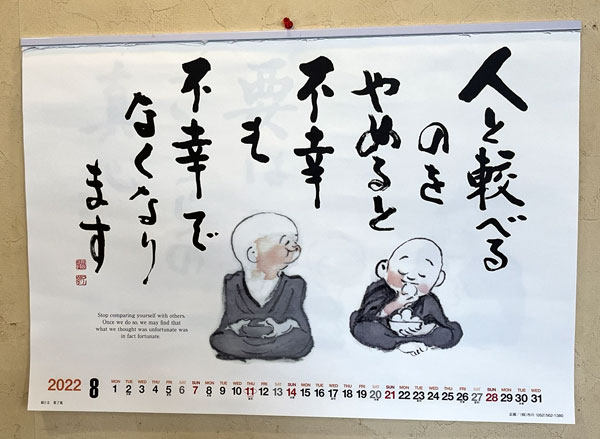 人と較べる
のを
やめると
不幸
も
不幸で
なくなり
ます
Stop comparing yourself with others.
Once we do so, we may find that
what we thought was unfortunate was
in fact fortunate.
2022 8
MON TUE WED THU FRI SAT SUN MON TUE WED THU FRI SAT SUN MON TUE WED THU FRI SAT SUN MON TUE WED THU FRI SAT SUN MON TUE WED
1 2 3 4 5 6 7 8 9 10 11 12 13 14 15 16 17 18 19 20 21 22 23 24 25 26 27 28 29 30 31